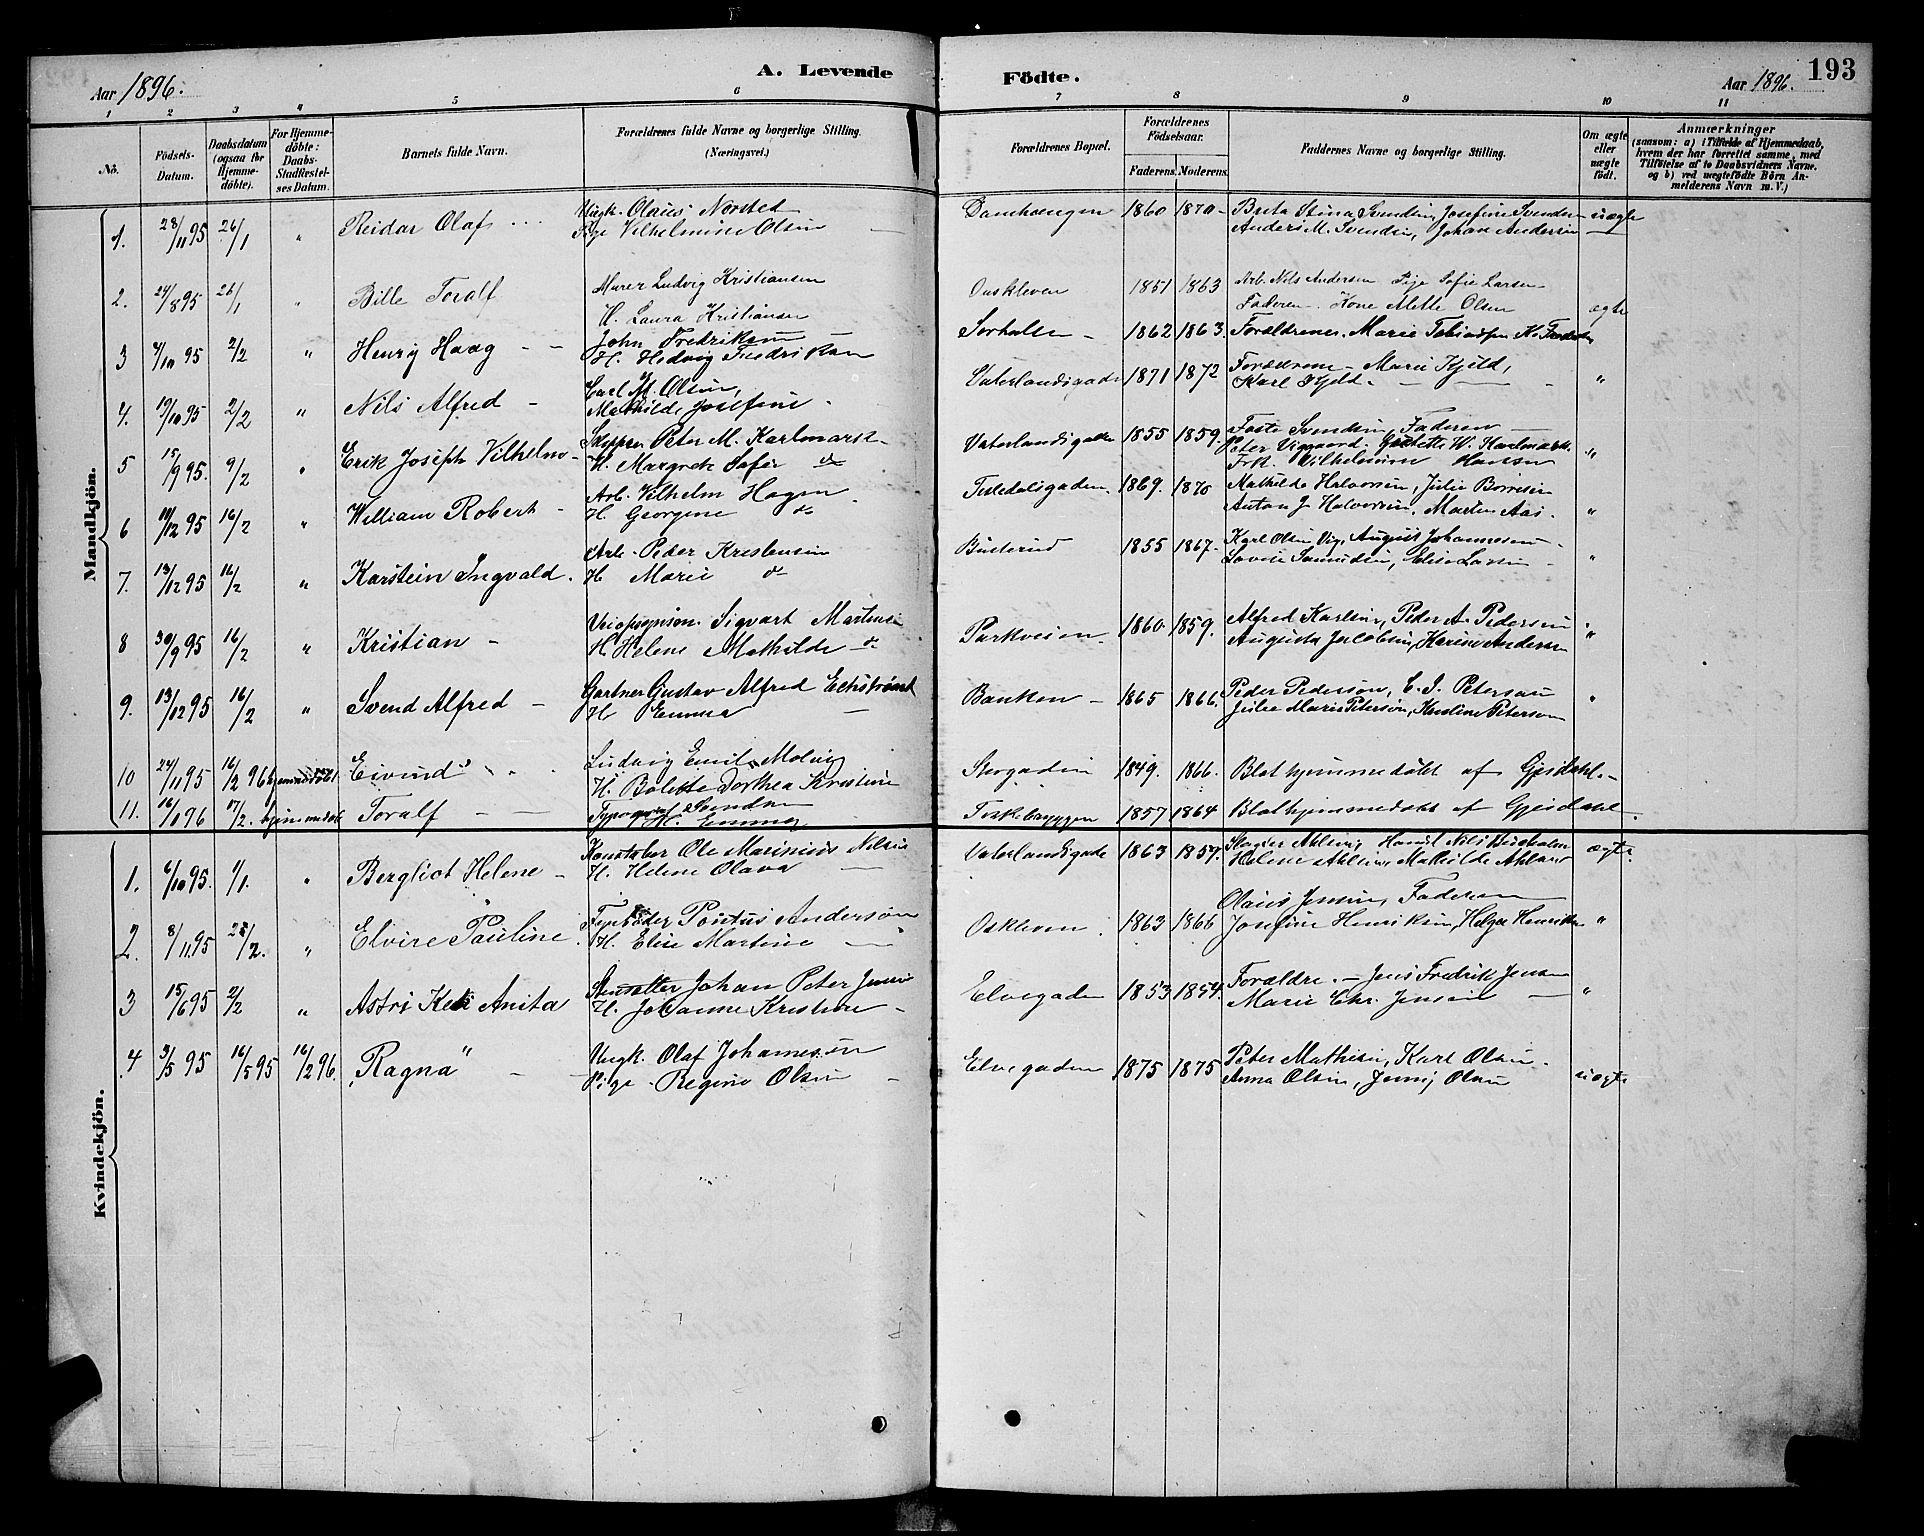 Aar 1896.
A. Levende
Födte.
Aar 1896.
193
1 2 3 4 5 6 7 8 9 10 11
No.
Födsels-Datum.
Daabsdatum (ogsaa for Hjemmedöbte).
For Hjemmedöbte: Daabs-Stadfestelses Datum.
Barnets fulde Navn.
Forældrenes fulde Navne og borgerlige Stilling. (Næringsvei.)
Forældrenes Bopæl.
Forældrenes Födselsaar.
Faderens. Moderens.
Faddernes Navne og borgerlige Stilling.
Om ægte eller uægte födt.
Anmærkninger
(saasom: a) i Tilfælde af Hjemmedaab, hvem der har forrettet samme, med Tilföielse af to Daabsvidners Navne. og b) ved uægtefödte Börn Anmelderens Navn m. V.)
Mandkjön.
1. 28/11 95 26/1 " Reidar Olaf Ungk. Olaus Norsted Damhaugen 1860 1870 Berta Stina Svendsen, Josefine Svendsen uægte
Pige Vilhelmine Olsen Anders M. Svendsen, Johan Andersen
2. 24/8 95 26/1 " Bille Toralf Murer Ludvig Kristiansen Ouskleven 1851 1863 Arb. Nils Andersen Pige Sofie Larsen
H. Laura Kristiansen Faderen. Kone Mette Olsen ægte
3 4/10 95 2/2 " Henry Haag John Fredriksen Sorhalle 1862 1863. Forældrene. Marie Tobiassen
H. Hedvig Fredriksen
4. 19/10 95 2/2 " Nils Alfred Carl M. Olsen, Vaterlandsgade 1871 1872 Forældrene Marie Kjeld, "
Mathilde Josefine Karl Kjeld
5 15/9 95. 9/2 " Erik Joseph Vilhelm Skipper Peter M. Karlmark Vaterlandsgade 1855 1859. Svendsen, Faderen "
H. Margrete Sofie do Peter Viggaard. W. Karlmark. Frk. Vilhelmine Hansen
6 11/12 95 16/2 " William Robert Arb. Vilhelm Hagen Tistedalsgaden. 1869. 1870 Mathilde Halvorsen, Julie Borresen
H. Georgine do Anton J. Halvorsen, Martin Aas. "
7. 13/12 95 16/2 " Karstein Ingvald. Arb. Peder Kristensen Busterud 1855 1867. Karl Olsen Vig, August Johannesen
H Marie do Lovise Samuelsen, Elise Larsen "
8 30/9 95 16/2 " Kristian Sigvart Martinsen Parkveien 1860 1859. Alfred Karlsen, Peder A. Pedersen
H. Helene Mathilde do Augusta Jacobsen, Karine Andersen "
9. 13/12 95 16/2 " Svend Alfred Gartner Gustav Alfred Eckstrøm Banken 1865 1866. Peder Pedersen, C. J. Petersen "
H Emma Julie Marie Petersen, Karoline Petersen
10 24/11 95 16/2 96 hjemmedöbt Eivind Ludvig Emil Molvig Storgaden 1849. 1866. Blot hjemmedøbt af Gjesdahl.
H. Bolette Dorthea Kristine
11. 16/1 96 17/2. hjemmedöbt Toralf Typograf Svendsen Fiskebryggen 1857 1864 Blot hjemmedøbt af Gjesdahl.
H. Emma
Kvindekjön.
1. 6/10 95. 1/1. " Bergliot Helene Konstabel Ole Marinius Nilsen Vaterlandsgade 1863 1859. Nils ægte.
H. Helene Olava Helene Mathilde
2. 8/11 95 23/2. " Elvire Pauline. Fyrbøder Pontus Andersson Oskleven 1863 1866 Olaus Jensen, Faderen
H. Elise Martine Josefine Henriksen, Helga Henriksen "
3 15/6 95 2/2 " Astri Anita Johan Peter Jensen Elvegaden 1853 1854. Forældre. Jens Fredrik Jensen
H. Johanne Kristine Marie Chr. Jensen "
4 3/5 95 16/5 95 16/2 96. Ragna Ungk. Olaf Johannesen Elvegaden 1875 1875 Peter Mathisen, Karl Olsen.
Pige. Regine Olsen Anna Olsen, Jenny Olsen uægte